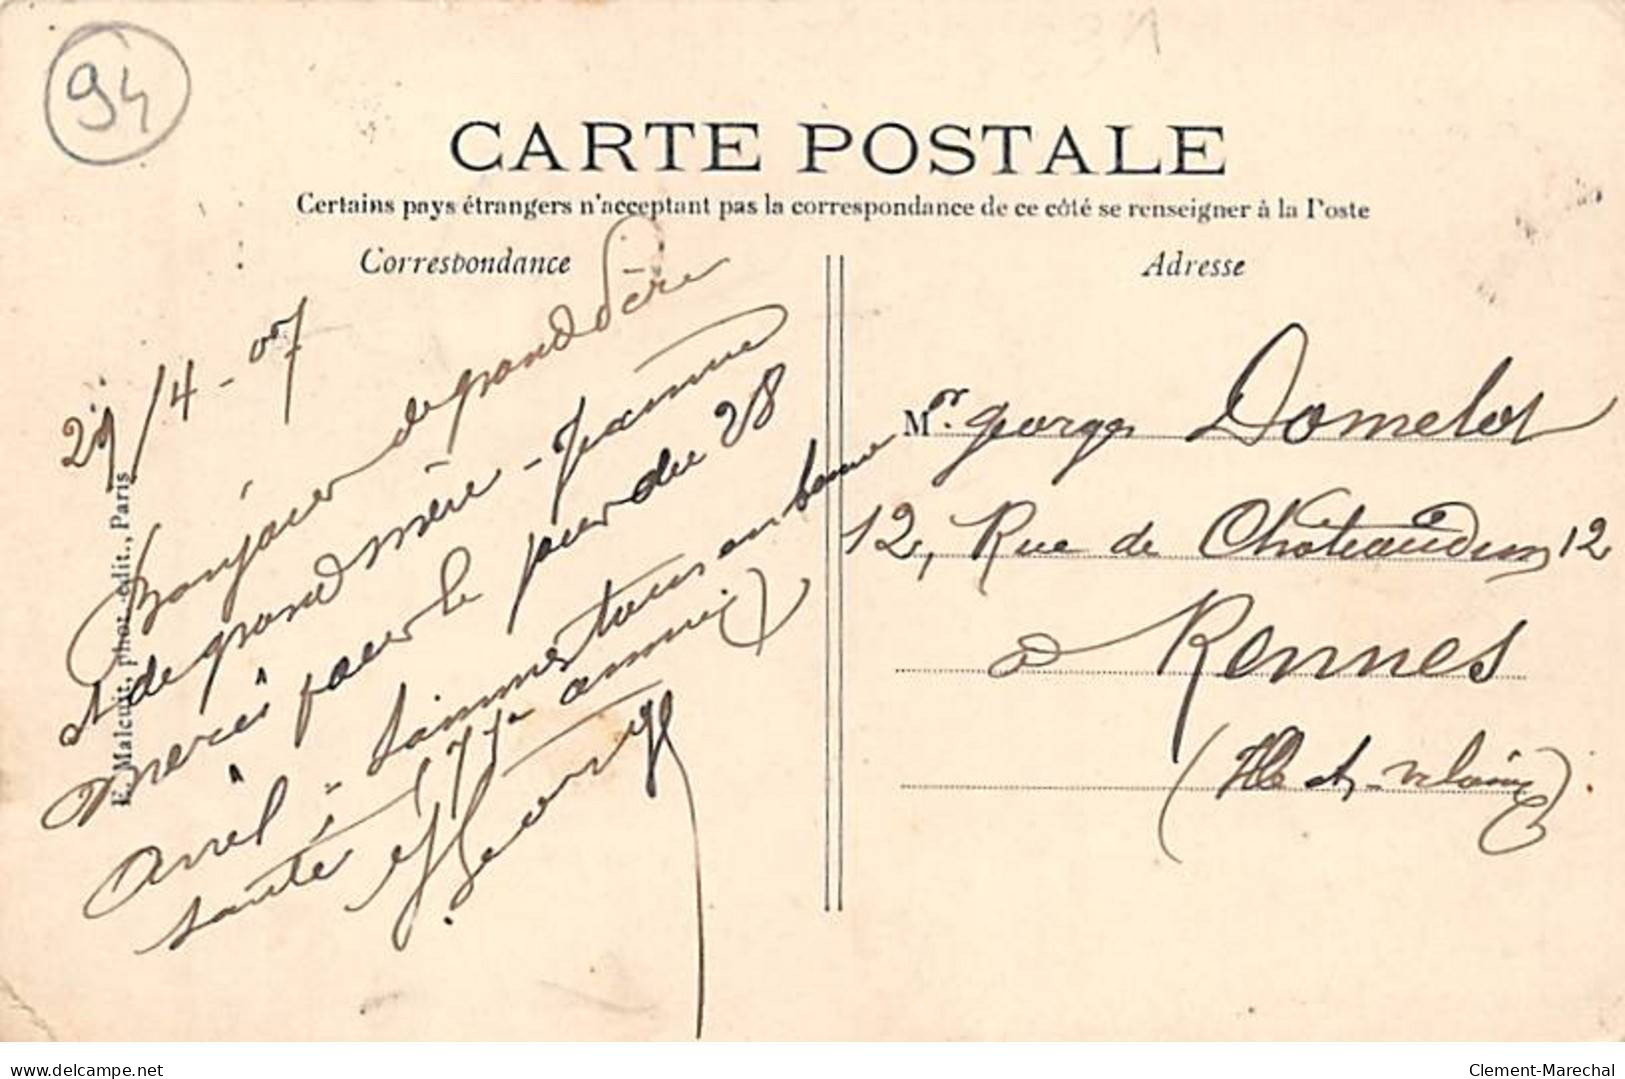 94
CARTE POSTALE
Certains pays étrangers n'acceptant pas la correspondance de ce côté se renseigner à la Poste
Correspondance
Adresse
29/4-07
Bonjour de grand Père
et de grand mère - Jeanne
merci pour le jour du 28
avril - sommes tous en bonne
santé
George
E. Malcuit, phot.-édit., Paris
Mr. Georges Domelot
12, Rue de Chateaudun, 12
à Rennes
(Ille et-vilaine)
www.delcampe.net
Clement-Marechal